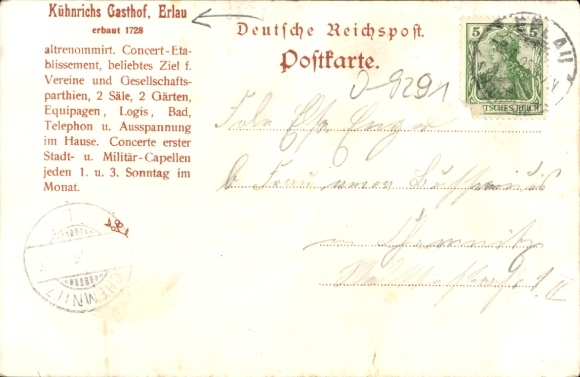 Kühnrichs Gasthof, Erlau
erbaut 1728
altrenommirt. Concert-Eta-
blissement, beliebtes Ziel f.
Vereine und Gesellschafts-
parthien, 2 Säle, 2 Gärten,
Equipagen, Logis, Bad,
Telephon u. Ausspannung
im Hause. Concerte erster
Stadt- u. Militär-Capellen
jeden 1. u. 3. Sonntag im
Monat.
Deutsche Reichspost.
Postkarte.
5 5
DEUTSCHES REICH
ERLAU
D-9291
Frln Elsa
b Frau
in Chemnitz
II
CHEMNITZ